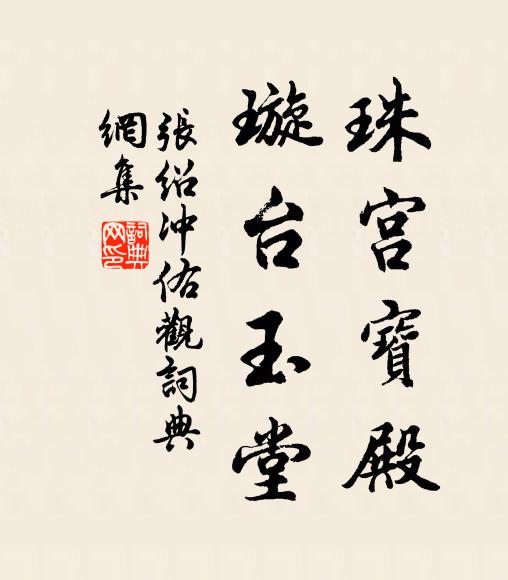 珠宫寶殿
璇台玉堂
張紹冲佑觀詞典
網集
詞典
网印